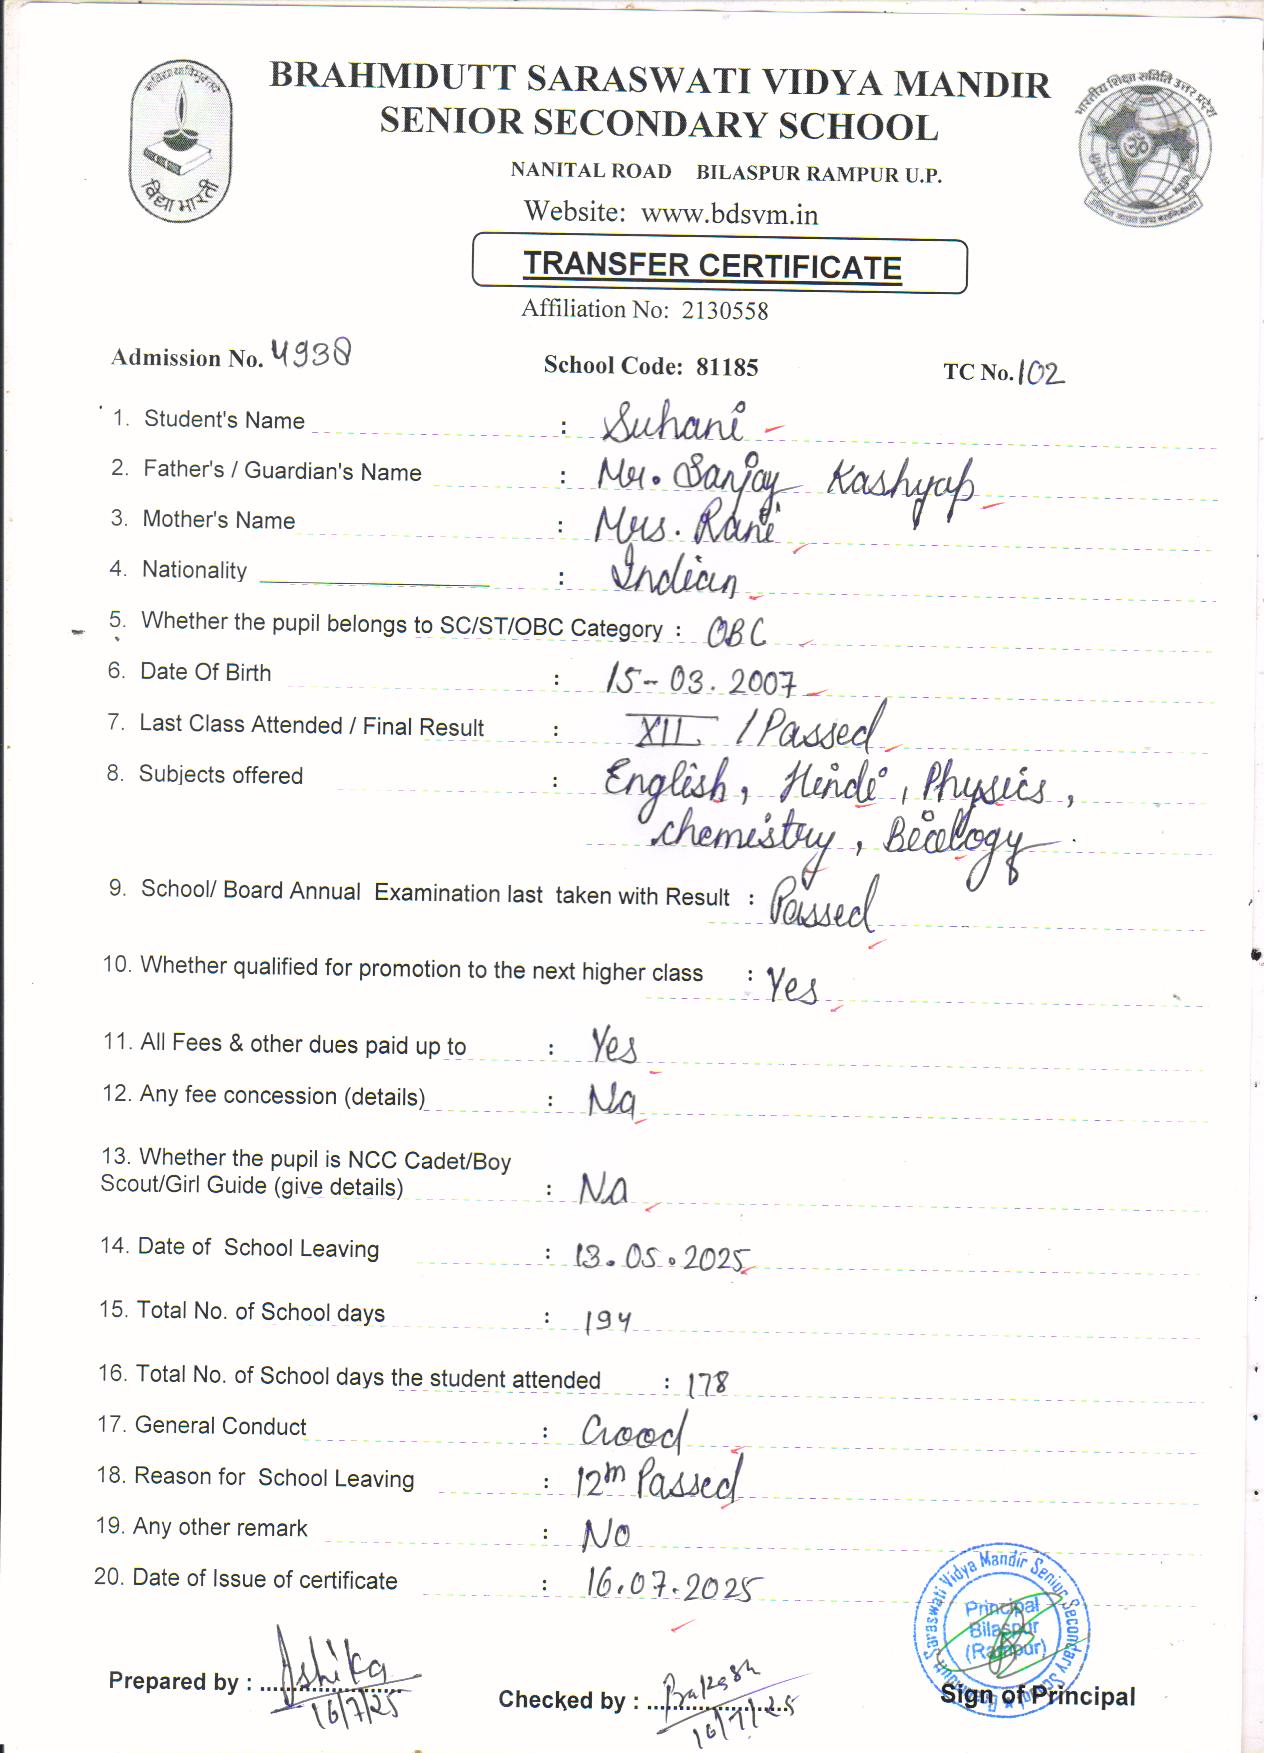 BRAHMDUTT SARASWATI VIDYA MANDIR
SENIOR SECONDARY SCHOOL
NANITAL ROAD BILASPUR RAMPUR U.P.
Website: www.bdsvm.in
विद्या भारती
भारतीय शिक्षा समिति उत्तर प्रदेश
TRANSFER CERTIFICATE
Affiliation No: 2130558
Admission No. 4938 School Code: 81185 TC No. 102
1. Student's Name : Suhani
2. Father's / Guardian's Name : Mr. Sanjay Kashyap
3. Mother's Name : Mrs. Rani
4. Nationality : Indian
5. Whether the pupil belongs to SC/ST/OBC Category : OBC
6. Date Of Birth : 15-03.2007
7. Last Class Attended / Final Result : XII / Passed
8. Subjects offered : English, Hindi, Physics,
chemistry, Biology
9. School/ Board Annual Examination last taken with Result : Passed
10. Whether qualified for promotion to the next higher class : Yes
11. All Fees & other dues paid up to : Yes
12. Any fee concession (details) : Na
13. Whether the pupil is NCC Cadet/Boy
Scout/Girl Guide (give details) : Na
14. Date of School Leaving : 13.05.2025
15. Total No. of School days : 194
16. Total No. of School days the student attended : 178
17. General Conduct : Good
18. Reason for School Leaving : 12th Passed
19. Any other remark : No
20. Date of Issue of certificate : 16.07.2025
Saraswati Vidya Mandir Senior Secondary School
Principal
Bilaspur
(Rampur)
Prepared by : Ashika
16/7/25
Checked by :
16/7/25
Sign of Principal